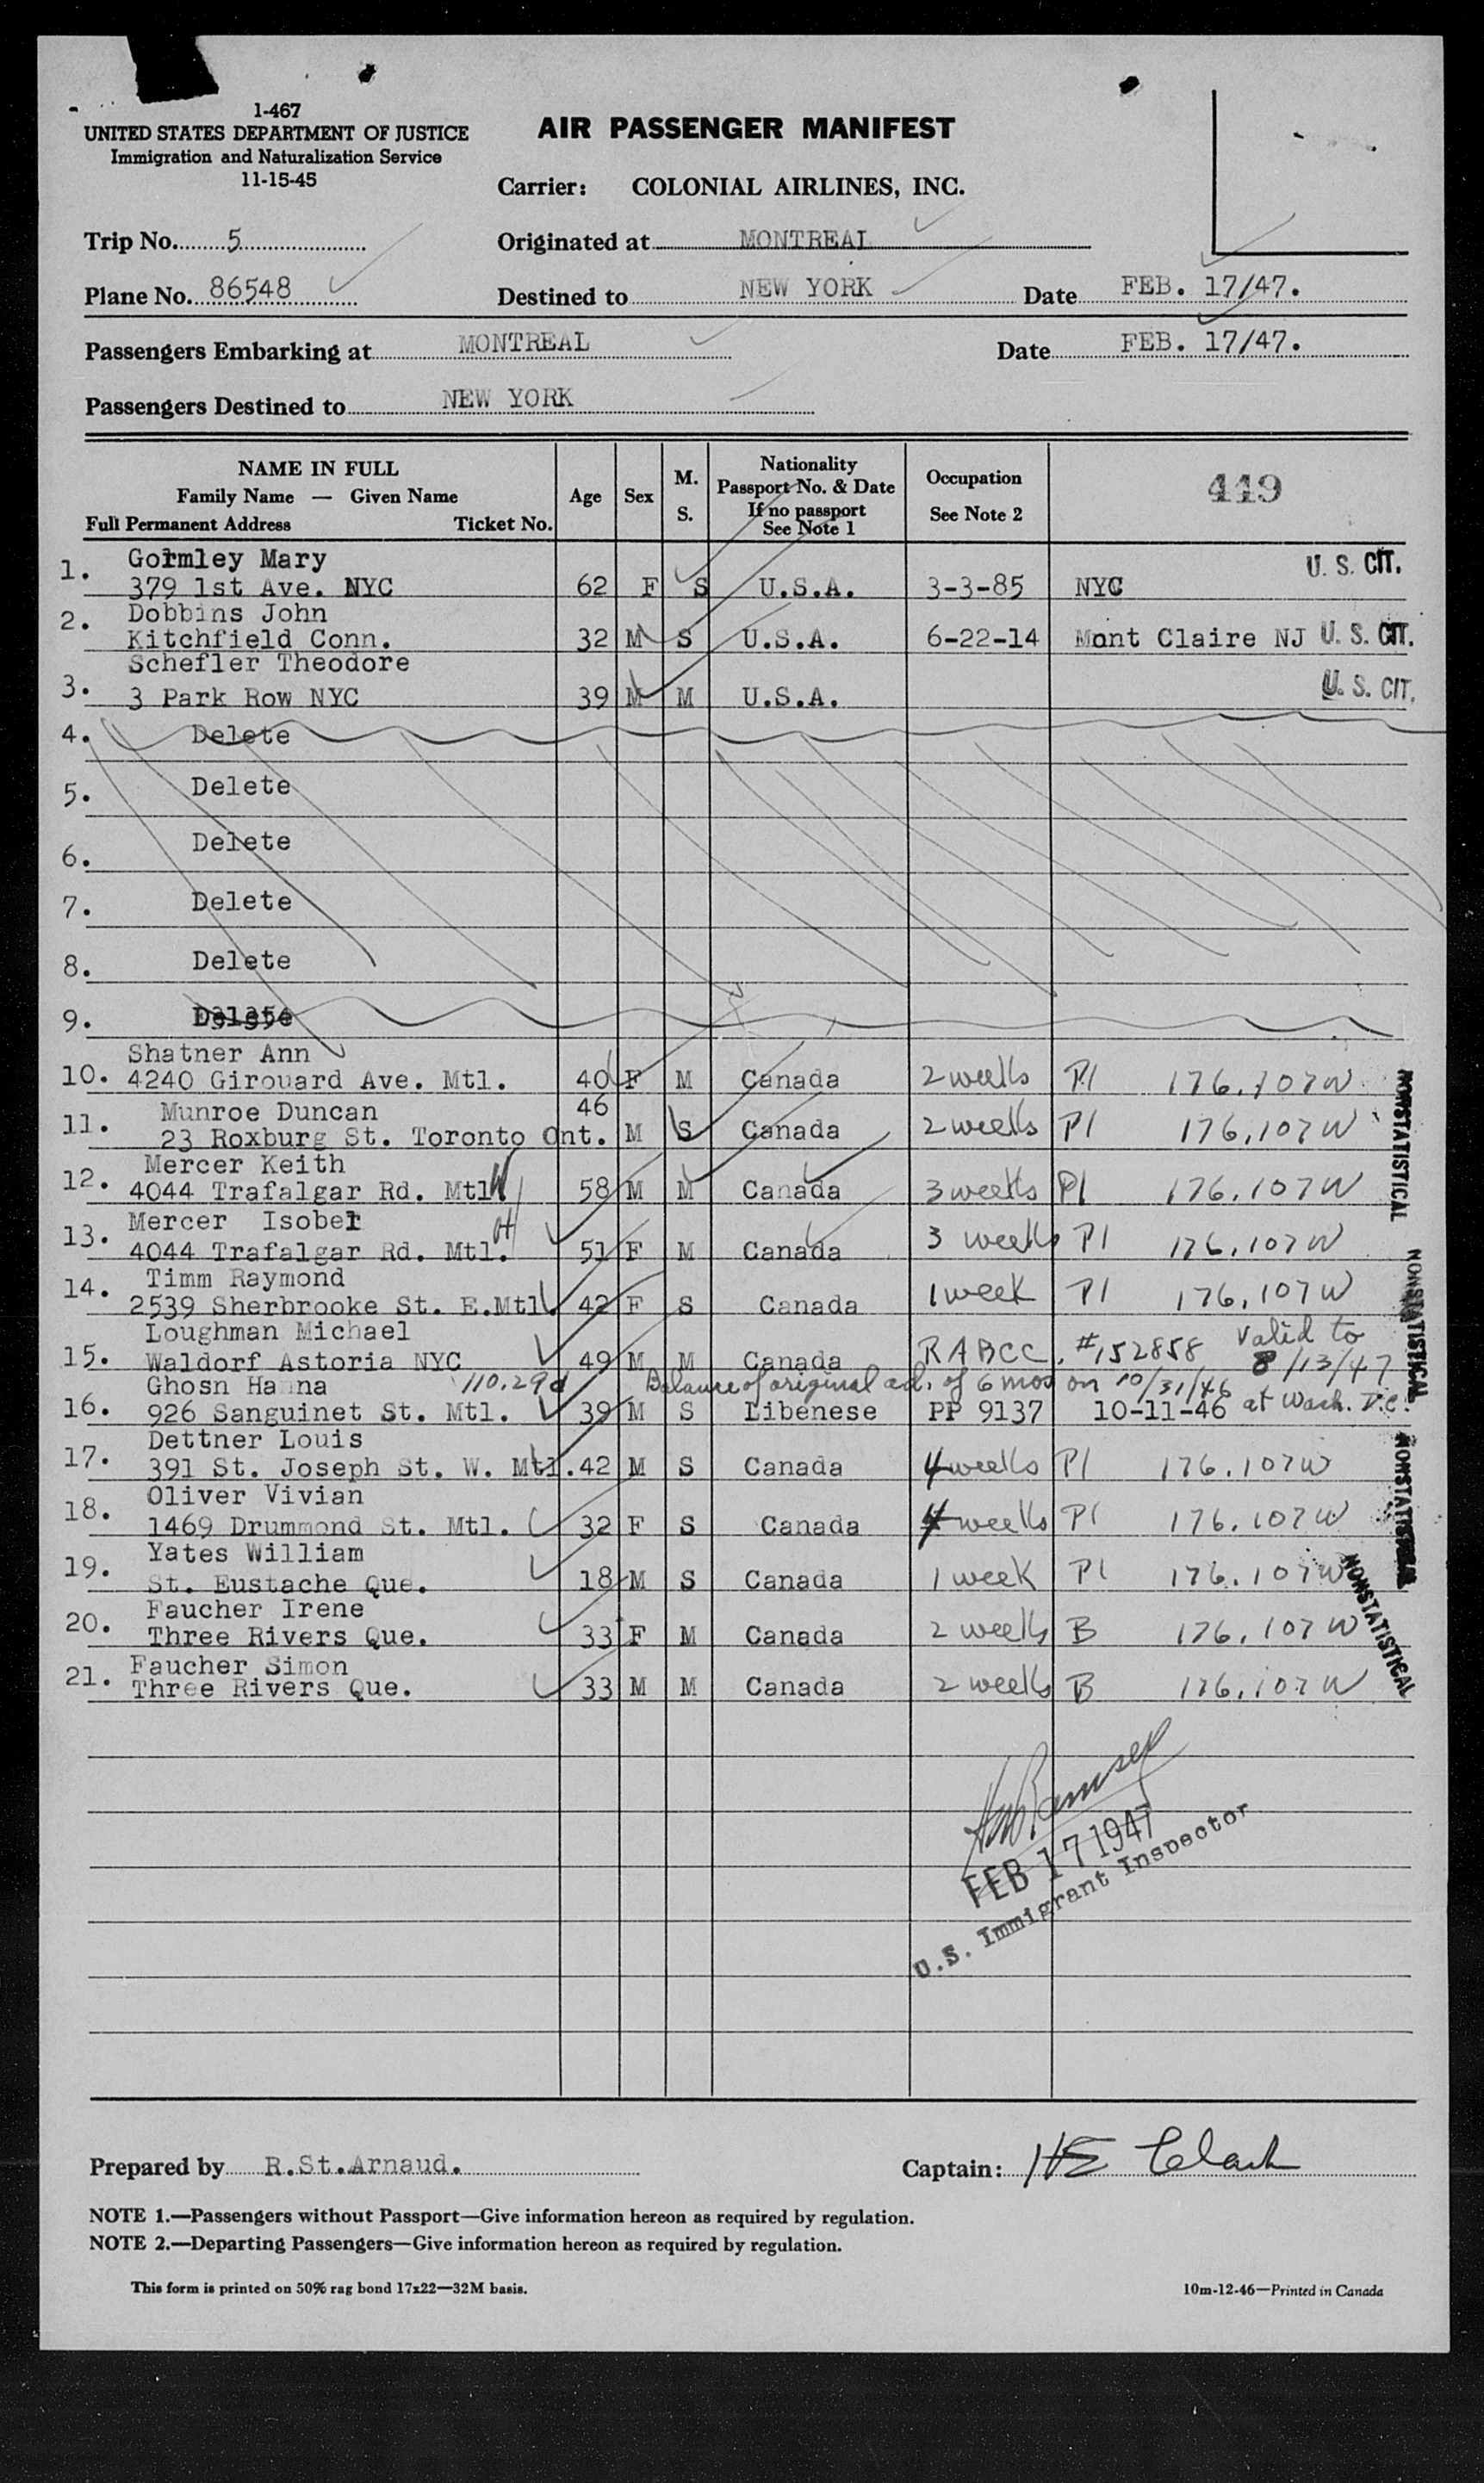 1-467
UNITED STATES DEPARTMENT OF JUSTICE
Immigration and Naturalization Service
11-15-45
AIR PASSENGER MANIFEST
Carrier: COLONIAL AIRLINES, INC.
Trip No. 5 Originated at MONTREAL
Plane No. 86548 Destined to NEW YORK Date FEB. 17/47.
Passengers Embarking at MONTREAL Date FEB. 17/47.
Passengers Destined to NEW YORK
NAME IN FULL
Family Name — Given Name
Full Permanent Address Ticket No.
Age
Sex
M.
S.
Nationality
Passport No. & Date
If no passport
See Note 1
Occupation
See Note 2
449
1. Gormley Mary U. S. CIT.
379 1st Ave. NYC 62 F S U.S.A. 3-3-85 NYC
2. Dobbins John
Kitchfield Conn. 32 M S U.S.A. 6-22-14 Mont Claire NJ U. S. CIT.
Schefler Theodore
3. 3 Park Row NYC 39 M M U.S.A. U. S. CIT.
4. Delete
5. Delete
6. Delete
7. Delete
8. Delete
9. Delete
Shatner Ann
10. 4240 Girouard Ave. Mtl. 40 F M Canada 2 weeks Pl 176.107W
Munroe Duncan 46
11. 23 Roxburg St. Toronto Ont. M S Canada 2 weeks Pl 176.107W
Mercer Keith
12. 4044 Trafalgar Rd. Mtl 58 M M Canada 3 weeks Pl 176.107W
Mercer Isobel
13. 4044 Trafalgar Rd. Mtl. 51 F M Canada 3 weeks Pl 176.107W
Timm Raymond
14. 2539 Sherbrooke St. E.Mtl. 42 F S Canada 1 week Pl 176.107W
Loughman Michael
15. Waldorf Astoria NYC 49 M M Canada RABCC. #152858 Valid to 8/13/47
Ghosn Hanna 110.29d Balance of original ad. of 6 mos on 10/31/46 at Wash. D.C.
16. 926 Sanguinet St. Mtl. 39 M S Libenese PP 9137 10-11-46
Dettner Louis
17. 391 St. Joseph St. W. Mtl. 42 M S Canada 4 weeks Pl 176.107W
Oliver Vivian
18. 1469 Drummond St. Mtl. 32 F S Canada 4 weeks Pl 176.107W
Yates William
19. St. Eustache Que. 18 M S Canada 1 week Pl 176.107W
Faucher Irene
20. Three Rivers Que. 33 F M Canada 2 weeks B 176.107W
Faucher Simon
21. Three Rivers Que. 33 M M Canada 2 weeks B 176.107W
NONSTATISTICAL
NONSTATISTICAL
NONSTATISTICAL
NONSTATISTICAL
Ramsey
FEB 17 1947
U.S. Immigrant Inspector
Prepared by R.St.Arnaud. Captain: HE Clark
NOTE 1.—Passengers without Passport—Give information hereon as required by regulation.
NOTE 2.—Departing Passengers—Give information hereon as required by regulation.
This form is printed on 50% rag bond 17x22—32M basis. 10m-12-46—Printed in Canada